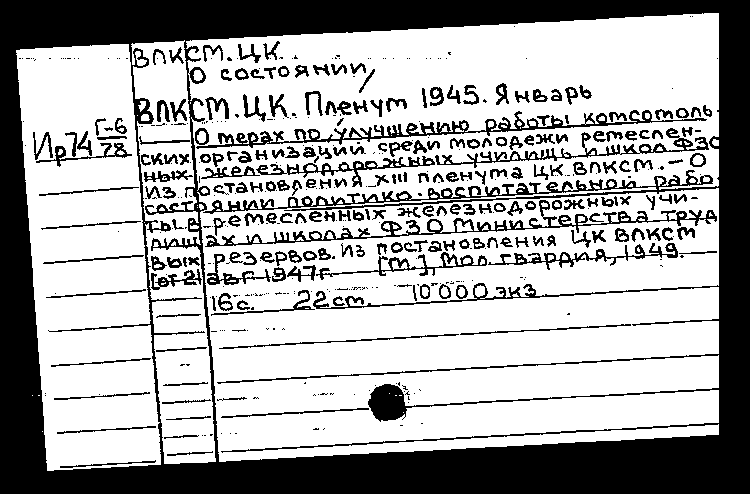 ВЛКСМ. ЦК.
О состоянии,
ВЛКСМ. ЦК. Пленум 1945. Январь
Ир74 Г-6/78
О мерах по улучшению работы комсомоль-
ских организаций среди молодежи ремеслен-
ных, железнодорожных училищь и школ ФЗО
Из постановления XIII пленума ЦК ВЛКСМ. — О
состоянии политико-воспитательной рабо
ты в ремесленных железнодорожных учи-
лищах и школах ФЗО Министерства труд
вых резервов. Из постановления ЦК ВЛКСМ
[от 21 авг 1947г. [М.], Мол. гвардия, 1949.
16 с. 22 см. 10 000 экз